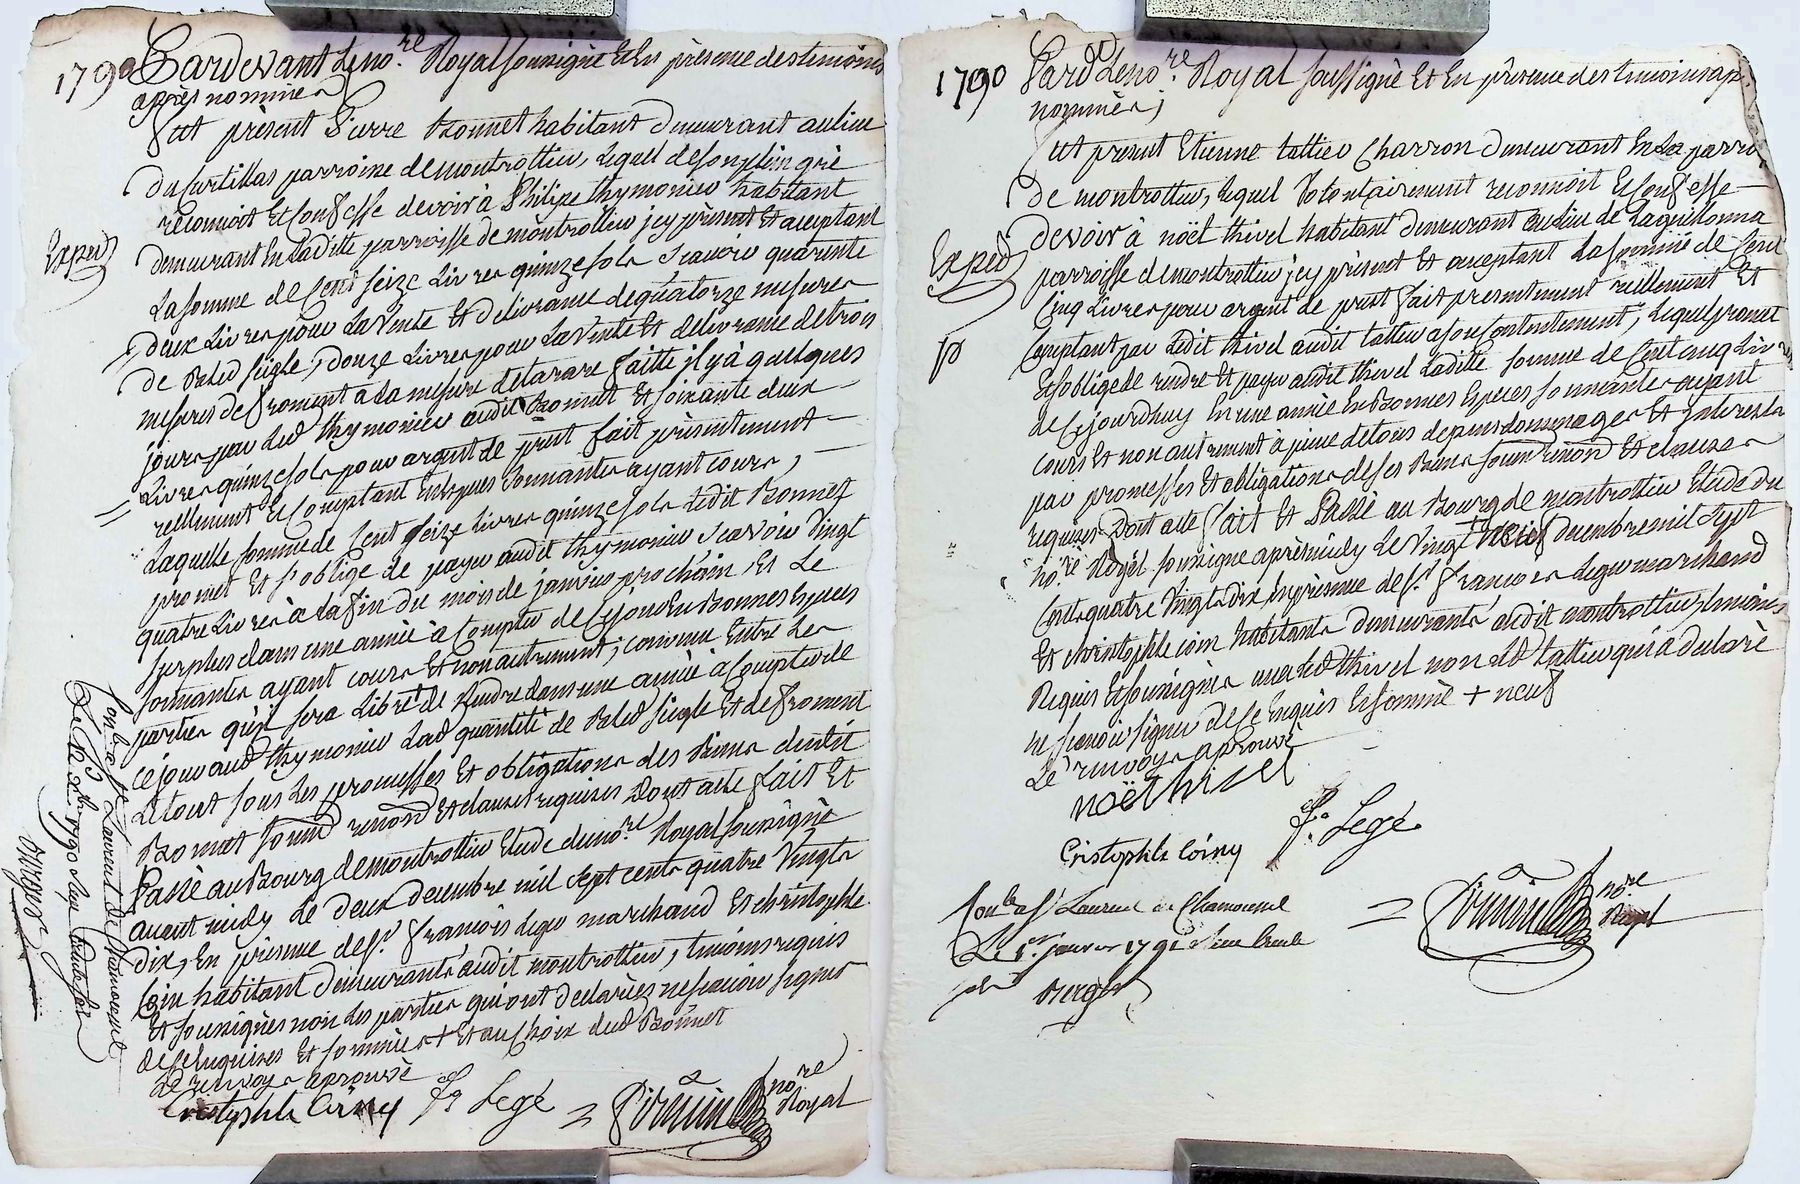 1790 Pardevant Le no.re Royal soussigné et En présence des témoins
après nommés
fut présent Pierre Bonnet habitant demeurant au lieu
du Curtillas parroisse de montrottier, Lequel de son plein gré
reconnoit Et Confesse devoir à Philipe thymonier habitant
demeurant En Laditte parroisse de montrottier jcy présent Et acceptant
Exped
La somme de Cent seize Livres quinze sols Scavoir quarente
deux Livres pour La Vente Et délivrance de quatorze mesures
de Bled seigle, douze Livres pour La Vente Et délivrance de trois
mesures de froment à La mesure de tarare faitte il y à quelques
jours par led thymonier audit Bonnet Et soixante deux
Livres quinze sols pour argent de prest fait présentement
réellement Et Comptant En Espèces sonnantes ayant cours,
Laquelle somme de Cent seize Livres quinze sols Ledit Bonnet
promet Et s'oblige de payer audit thymonier Scavoir Vingt
quatre Livres à La fin du mois de janvier prochain Et Le
surplus dans une année à Compter de Ce jour En Bonnes Espèces
sonnantes ayant cours Et non autrement, convenu Entre Les
parties qu'il sera Libre + de Rendre dans une année à Compter de
ce jour aud thymonier Lad quantité de Bled seigle Et de froment
Le tout sous Les promesses Et obligations des Biens dudit
Bonnet soumd renond Et clauses requises Dont acte fait Et
Passé au Bourg de montrottier Etude du no.re Royal soussigné
avant midy Le deux decembre mil sept cents quatre Vingts
dix, En présence de sr. françois Legé marchand Et christophle
Coin habitant demeurants audit montrottier, témoins requis
Et soussignés non Les parties qui ont declarées ne scavoir signer
de Ce Enquises Et sommées + Et au Choix dud Bonnet
Le renvoy aprouvé
Cristophle Coiny fs Legé no.re Royal
Conlé à St Laurent de Chamousset
Le Xbre 1790
Berger
1790 Pard Le no.re Royal soussigné Et En présence des témoins ap.
nommés;
fut présent Etienne tattieu Charron demeurant En La parro
de montrottier, Lequel Volontairement reconnoit Et Confesse
devoir à noël thivel habitant demeurant au lieu de
Exped
parroisse de montrottier jcy présent Et acceptant La somme de Cent
Cinq Livres pour argent de prest fait présentement réellement Et
Comptant par Ledit thivel audit tattieu à son Contentement, Lequel promet
Et s'oblige de rendre Et payer audit thivel Laditte somme de Cent cinq Livres
de Cejourdhuy En une année En Bonnes Especes sonnantes ayant
cours Et non autrement à peine de tous depens dommages Et
par promesses Et obligations de ses Biens soumd renond Et clauses
requises Dont acte fait Et Passé au Bourg de montrottier Etude du
no.re Royal soussigné après midy Le Vingt + decembre mil sept
Cents quatre Vingts dix En présence de sr. françois Legé marchand
Et christophle coin habitants demeurants audit montrottier, témoins
Requis Et soussignés avec led thivel non led tattieu qui à declaré
ne scavoir signer de Ce Enquis Et sommé + neuf
Le renvoy aprouvé
noël thivel
fs. Legé
Cristophle Coiny
Conlé à St Laurent de Chamousset
Le 1er janvier 1791
Berger
no.re Royal